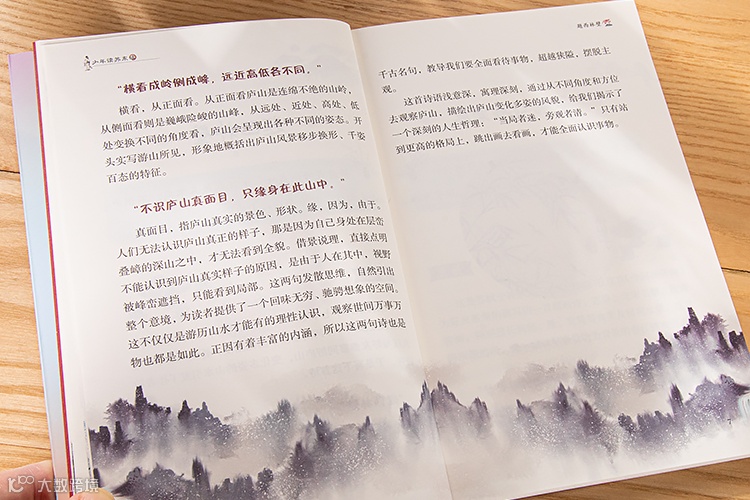 少年读苏东坡
“横看成岭侧成峰，远近高低各不同。”
横看，从正面看。从正面看庐山是连绵不绝的山岭，
从侧面看则是巍峨险峻的山峰，从远处、近处、高处、低
处变换不同的角度看，庐山会呈现出各种不同的姿态。开
头实写游山所见，形象地概括出庐山风景移步换形、千姿
百态的特征。
“不识庐山真面目，只缘身在此山中。”
真面目，指庐山真实的景色、形状。缘，因为，由于。
人们无法认识庐山真正的样子，那是因为自己身处在层峦
叠嶂的深山之中，才无法看到全貌。借景说理，直接点明
不能认识到庐山真实样子的原因，是由于人在其中，视野
被峰峦遮挡，只能看到局部。这两句发散思维，自然引出
整个意境，为读者提供了一个回味无穷、驰骋想象的空间。
这不仅仅是游历山水才能有的理性认识，观察世间万事万
物也都是如此。正因有着丰富的内涵，所以这两句诗也是
题西林壁
千古名句，教导我们要全面看待事物，超越狭隘，摆脱主
观。
这首诗语浅意深，寓理深刻，通过从不同角度和方位
去观察庐山，描绘出庐山变化多姿的风貌，给我们揭示了
一个深刻的人生哲理：“当局者迷，旁观者清。”只有站
到更高的格局上，跳出画去看画，才能全面认识事物。
7
大数跨境